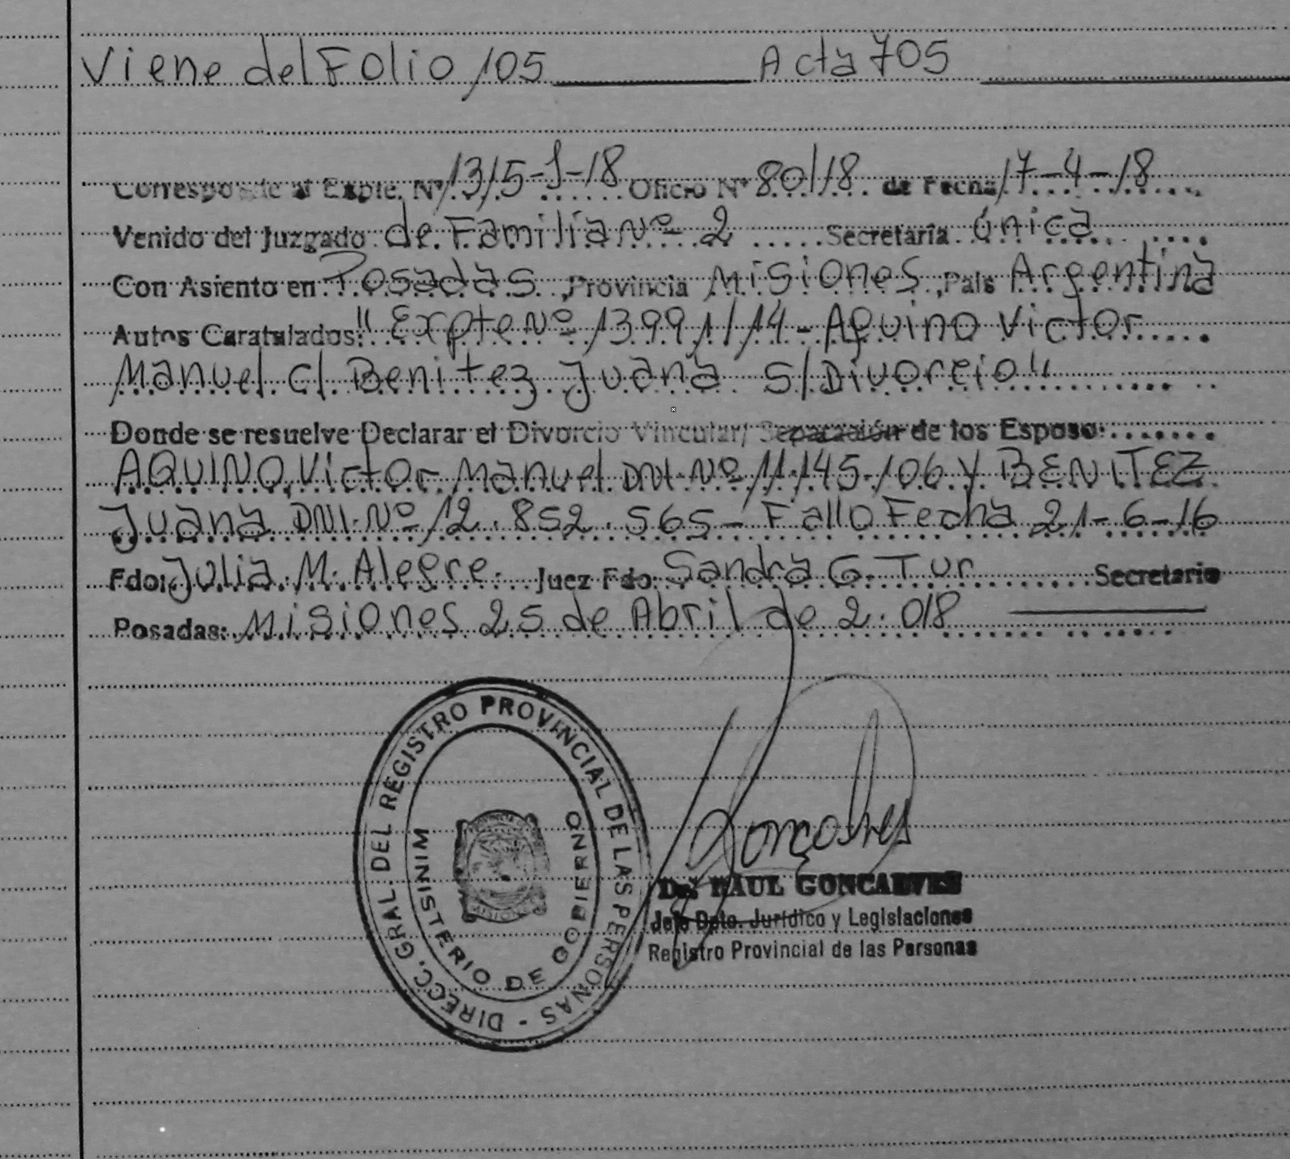 Viene del Folio 105 Acta 705
Corresponde al Expte. Nº 1315-J-18 Oficio Nº 80/18 de Fecha 17-4-18
Venido del Juzgado de Familia Nº 2 Secretaría única
Con Asiento en Posadas, Provincia Misiones, País Argentina
Autos Caratulados: "Expte Nº 13991/14 - Aquino Victor
Manuel c/ Benitez Juana s/ Divorcio"
Donde se resuelve Declarar el Divorcio Vincular/ Separación de los Esposo:
AQUINO, Victor Manuel DNI-Nº 11.145.106 Y BENITEZ
Juana DNI-Nº 12.852.565- Fallo Fecha 21-6-16
Fdo: Julia M. Alegre. Juez Fdo: Sandra G. Tur Secretario
Posadas: Misiones 25 de Abril de 2.018
DIRECC. GRAL. DEL REGISTRO PROVINCIAL DE LAS PERSONAS -
MINISTERIO DE GOBIERNO
Goncalves
Dr. RAUL GONCALVES
Jefe Dpto. Jurídico y Legislaciones
Registro Provincial de las Personas